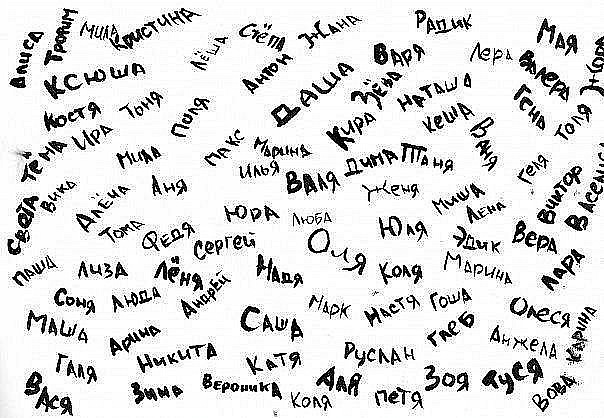 Алиса
Трофим
Мила
Кристина
Лёша
Стёпа
Жана
Радик
Мая
Ксюша
Антон
Варя
Лера
Валера
Жора
Костя
Тоня
Поля
Даша
Зёва
Наташа
Гена
Толя
Тёма
Ира
Мила
Макс
Марина
Илья
Кира
Кеша
Ваня
Дима
Таня
Геля
Света
Вика
Алёна
Аня
Валя
Женя
Миша
Лена
Виктор
Василиса
Тома
Федя
Юра
Люба
Юля
Эдик
Вера
Сергей
Оля
Паша
Лиза
Лёня
Андрей
Надя
Коля
Марина
Лара
Соня
Люда
Марк
Настя
Гоша
Олеся
Маша
Арина
Саша
Глеб
Анжела
Карина
Галя
Никита
Катя
Руслан
Вася
Зина
Вероника
Коля
Аля
Петя
Зоя
Туся
Вова